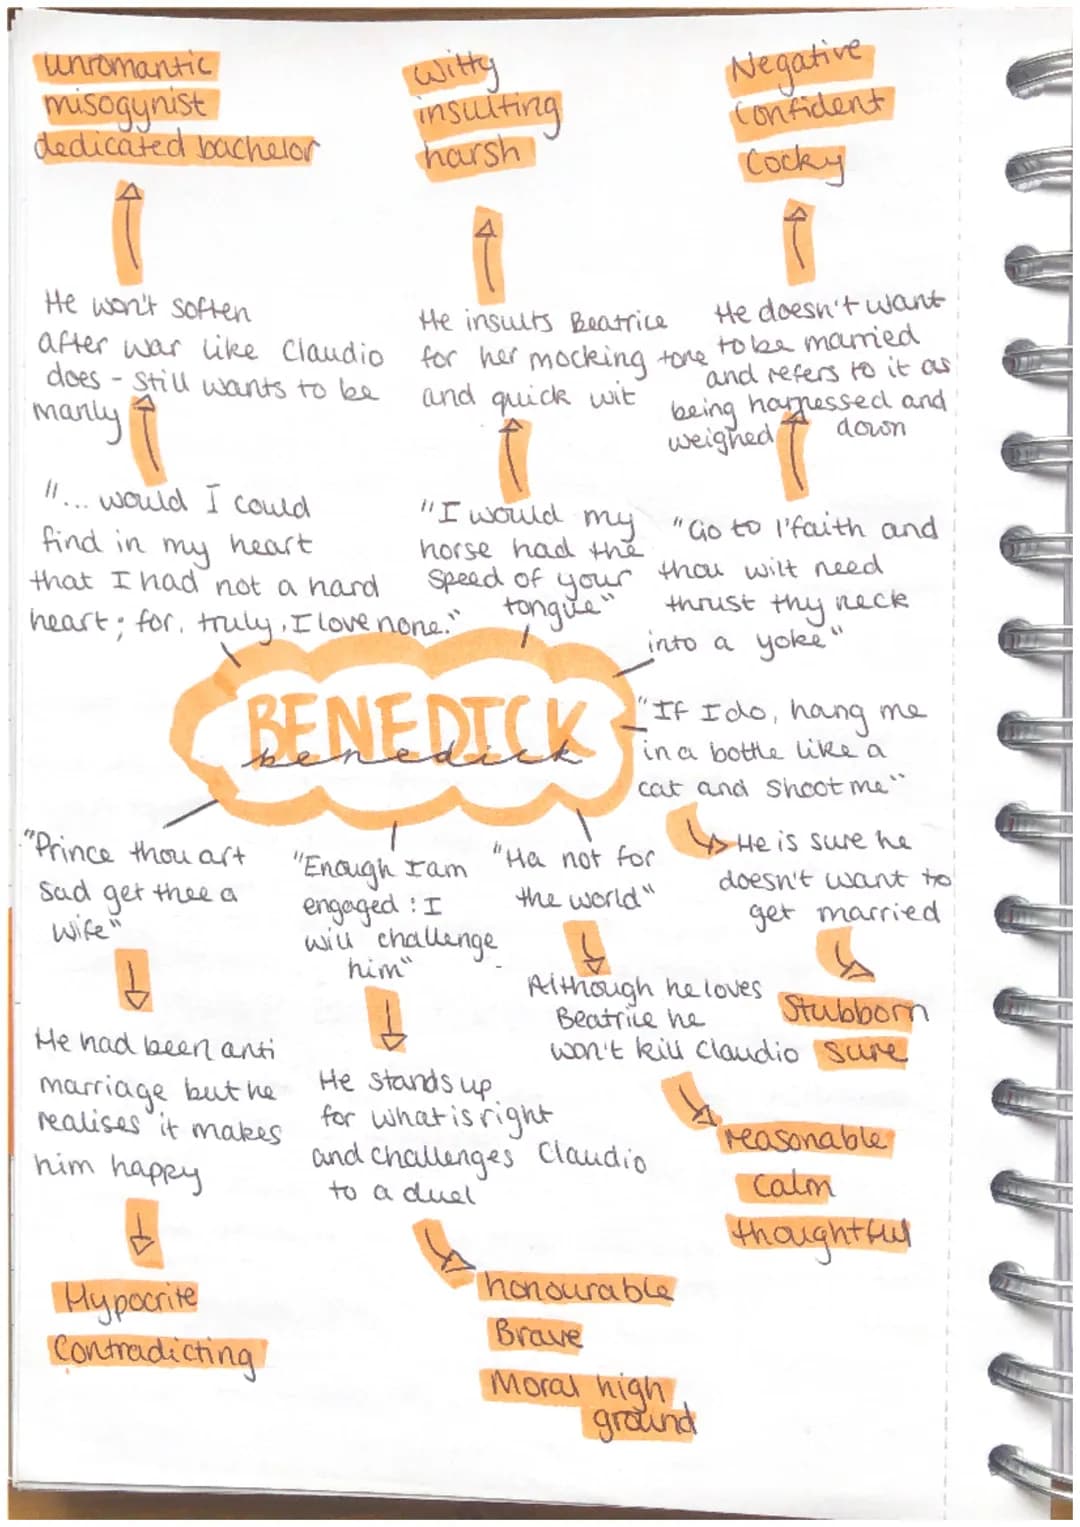 unromantic
misogynist
dedicated bachelor
witty
insulting
harsh
Negative
confident
Cocky
He won't soften
after war like Claudio
does - still wants to be
manly
He insults Beatrice
for her mocking tone
and quick wit
He doesn't want
to be married
and refers to it as
being harnessed and
weighed down
"... would I could
find in my heart
that I had not a hard
heart; for, truly, I love none."
"I would my
horse had the
speed of your
tongue"
"Go to I'faith and
thou wilt need
thrust thy neck
into a yoke"
BENEDICK
benedick
"If I do, hang me
in a bottle like a
cat and shoot me"
He is sure he
doesn't want to
get married
Stubborn
Sure
"Prince thou art
sad get thee a
wife"
He had been anti
marriage but he
realises it makes
him happy
Hypocrite
Contradicting
"Enough I am
engaged: I
will challenge
him"
He stands up
for what is right
and challenges Claudio
to a duel
honourable
Brave
Moral high
ground
"Ha not for
the world"
Although he loves
Beatrice he
won't kill Claudio
reasonable
Calm
thoughtful